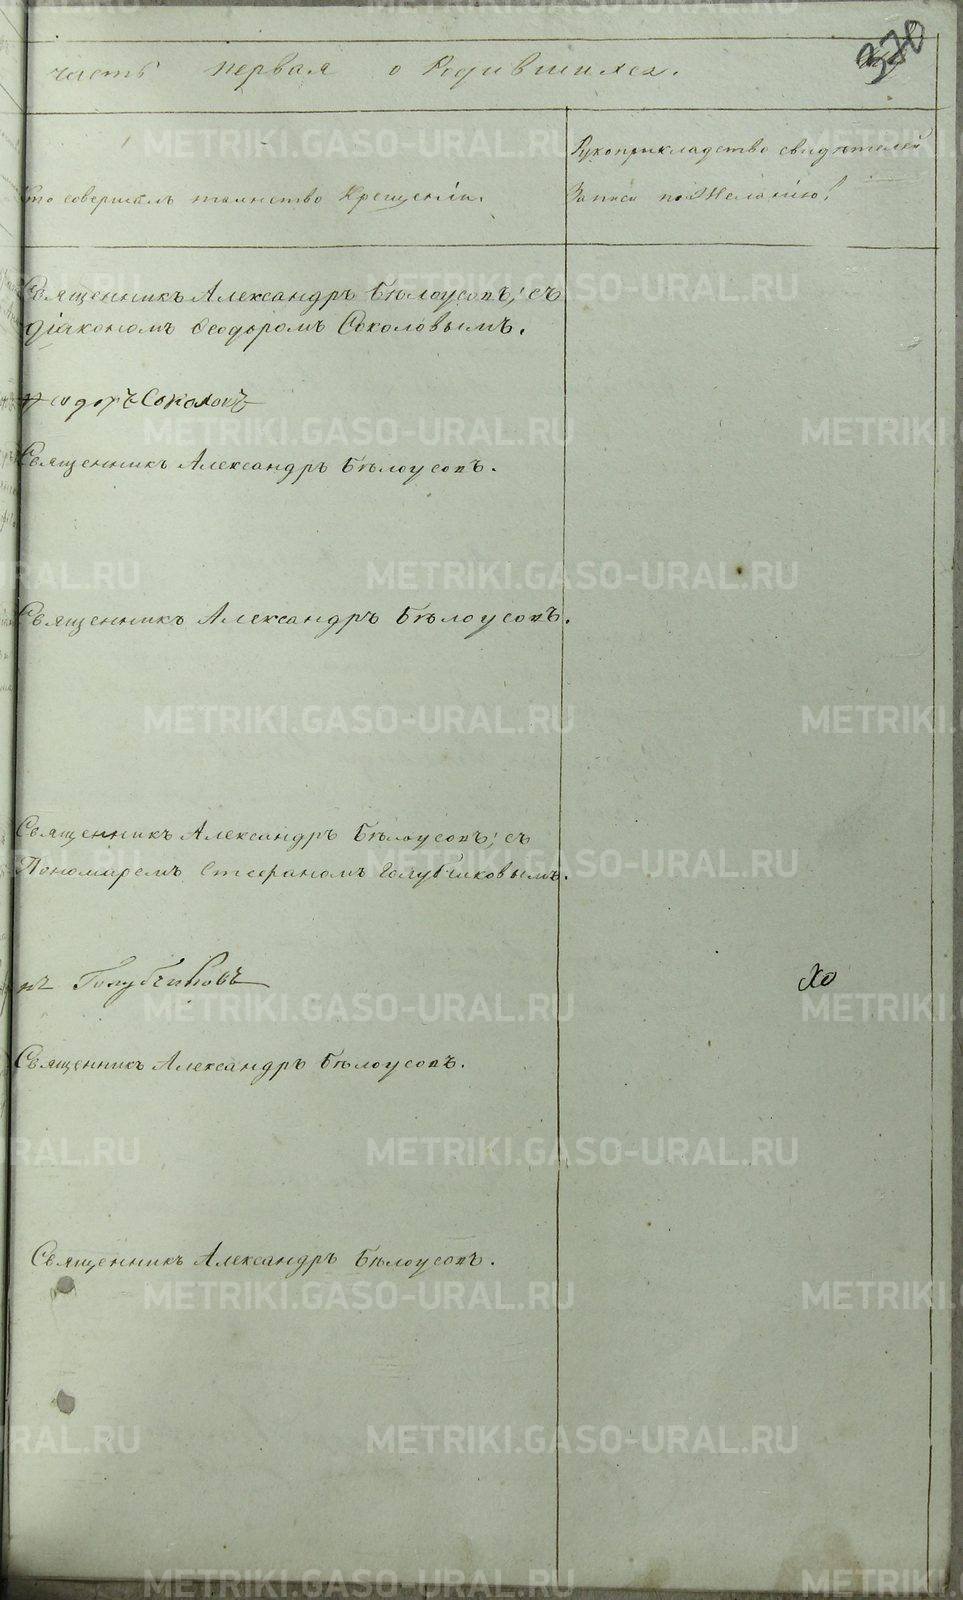 370
часть первая о Родившихся.
Кто совершалъ таинство Крещенія.
Рукоприкладство свидѣтелей
Записи по Желанію!
Священникъ Александръ Бѣлоусовъ; съ
діакономъ Ѳеодоромъ Соколовымъ.
Соколовъ
Священникъ Александръ Бѣлоусовъ.
Священникъ Александръ Бѣлоусовъ.
Священникъ Александръ Бѣлоусовъ; съ
Пономаремъ Стефаномъ Голубчиковымъ.
Голубчиковъ
Хо
Священникъ Александръ Бѣлоусовъ.
Священникъ Александръ Бѣлоусовъ.
METRIKI.GASO-URAL.RU